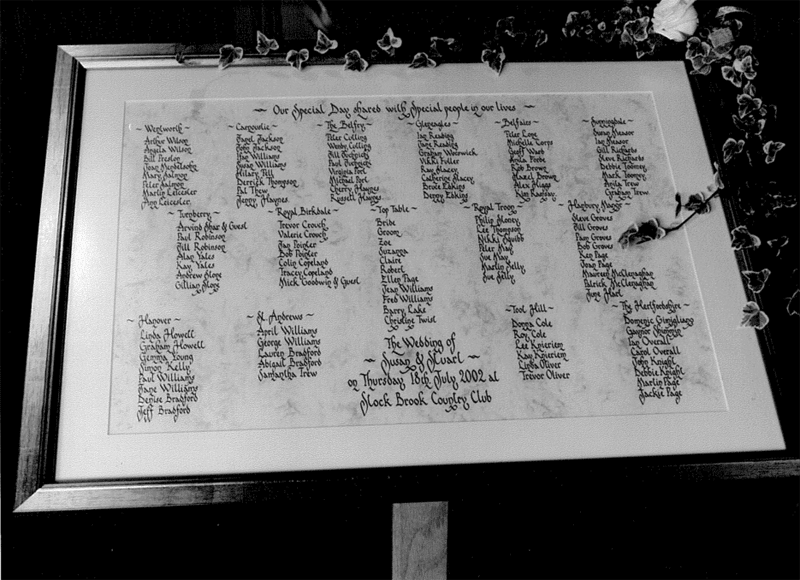 ~ Our Special Day shared with Special people in our lives ~
~ Wentworth ~
Arthur Wilson
Angela Wilson
Bill Preston
Joan Mendelsohn
Mary Salmon
Peter Salmon
Martin Leicester
Ann Leicester
~ Carnoustie ~
Janet Jackson
John Jackson
Ian Williams
Susan Williams
Hilary Fill
Derrick Thompson
Pat Thew
Jenny Haynes
~ The Belfry ~
Peter Collins
Wendy Collins
Virginia Port
Michael Port
Cherry Haynes
Russell Haynes
~ Gleneagles ~
Ian Reading
Jane Reading
Graham
Vikki Fuller
Ray Stacey
Catherine Stacey
Bruce Eakins
Denny Eakins
~ Belfairs ~
Peter Lowe
Michelle Corps
Geoff Ward
Anita
Rob Brown
Hazel Brown
Alex
Kim
~ Sunningdale ~
Susan Measor
Ian Measor
Gill Richards
Steve Richards
Debbie Toomey
Mark Toomey
Anita Trew
Graham Trew
~ Turnberry ~
Arvind Shar & Guest
Paul Robinson
Jill Robinson
Alan Yates
Kay Yates
Andrew Stone
Gillian Stone
~ Royal Birkdale ~
Trevor Crouch
Valerie Crouch
Jan Pointer
Bob Pointer
Colin Copeland
Tracey Copeland
Mick Goodwin & Guest
~ Top Table ~
Bride
Groom
Zoe
Suzanna
Claire
Robert
Ellen Page
Jean Williams
Fred Williams
Barry Lake
Christine Twist
~ Royal Troon ~
Philip Stoney
Lee Thompson
Nikki Squibb
Peter May
Sue May
Martin Kelly
Sue Kelly
~ Hanbury Manor ~
Steve Groves
Bill Groves
Pam Groves
Bob Groves
Ken Page
Joan Page
Maureen McClenaghan
Patrick McClenaghan
June Hart
~ Hanover ~
Linda Howell
Graham Howell
Gemma Young
Simon Kelly
Paul Williams
Jane Williams
Denise Bradford
Jeff Bradford
~ St. Andrews ~
April Williams
George Williams
Lauren Bradford
Abigail Bradford
Samantha Trew
The Wedding of
~ Susan & Stuart ~
on Thursday 18th July 2002 at
Stock Brook Country Club
~ Toot Hill ~
Donna Cole
Roy Cole
Lee Knieriem
Kay Knieriem
Linda Oliver
Trevor Oliver
~ The Hertfordshire ~
Domenic Gimigliano
Gaynor
Ian Overall
Carol Overall
Tom Knight
Debbie Knight
Martin Page
Jackie Page